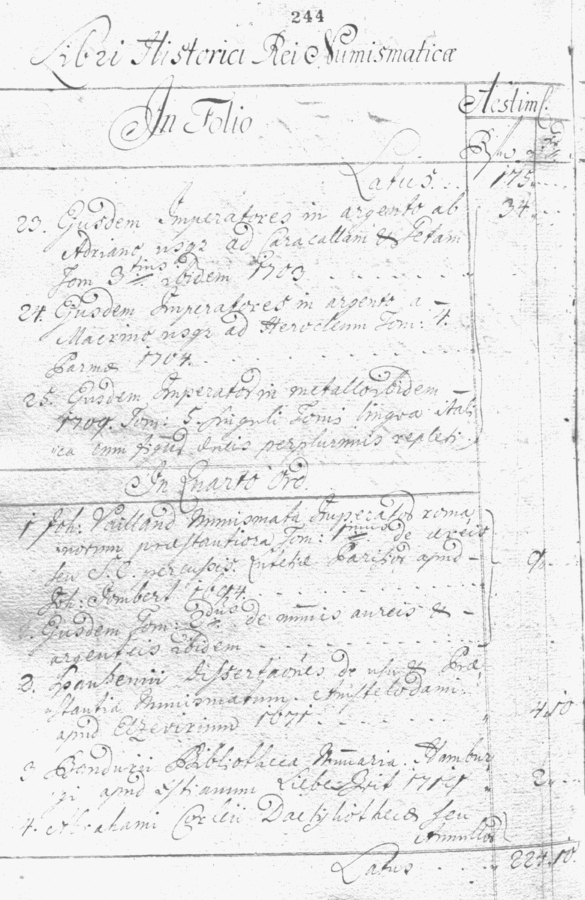 244
Libri Historici Rei Numismaticæ
In Folio
Aestim
Latus . . . 175
23. Ejusdem Imperatores in argento ab 34
Adriano usqz ad Caracallam & Getam
Tom 3tius ibidem 1703 . . . . . . .
24. Ejusdem Imperatores in argento a
Macrino usqz ad Herocleum Tom: 4.
Parmæ 1704. . . . . . . . . .
25. Ejusdem Imperator in metallo ibidem
1709. Tom: 5. singuli Tomi lingva Itali
ica cum perplurimis repleti.
In Quarto Ord.
1 Joh: Vailland Numismata Imperator roma
norum præstantiora Tom: 1mus de æreis
seu S. C. percussis. Lutetiæ Parisior apud
Joh: Jombert 1694. . . . . . . . .
Ejusdem Tom: 2dus de numis aureis &
argenteis ibidem . . . . . . . . .
2. Spanhemii Dissertaones de usu & Præ
stantia Numismatum. Amstelodami
apud Elzevirium 1671. . . . . . . 4 10
3 Banduri Bibliotheca Numaria. Hambur
gi apud Liebezeit 1719 2
4. Abrahami Gorlæi Dactyliotheca seu
Annullor
Latus . . . . 224.10.